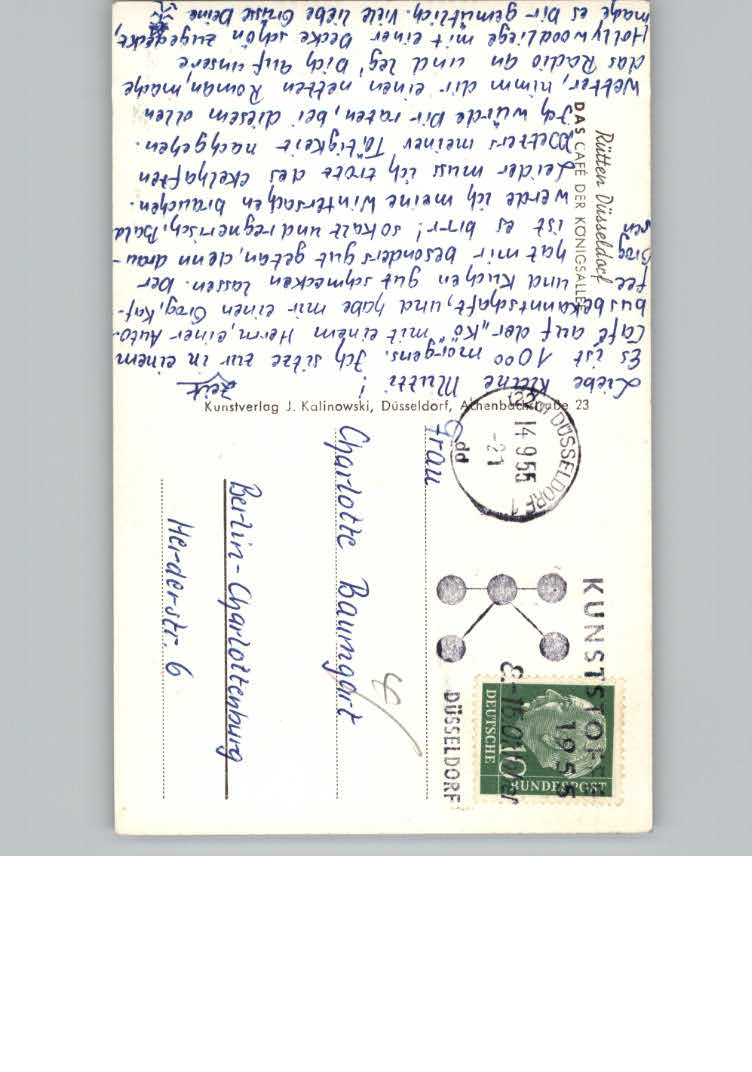 Liebe kleine Mutti!
Es ist 10oo morgens. Ich sitze zur Zeit in einem
Café auf der „Kö" mit einem Herrn, einer Auto-
busbekanntschaft, und habe mir einen Grog, Kaf-
fee und Kuchen gut schmecken lassen. Der
Grog hat mir besonders gut getan, denn drau-
ßen ist es brrr! so kalt und regnerisch. Bald
werde ich meine Wintersachen brauchen.
Leider muss ich trotz des ekelhaften
Wetters meiner Tätigkeit nachgehen.
Ich würde Dir raten, bei diesem ollen
Wetter, nimm dir einen netten Roman, mache
das Radio an und leg' Dich auf unsere
Hollywoodliege mit einer Decke schön zugedeckt,
mache es Dir gemütlich. Viele liebe Grüsse Deine
Rütten Düsseldorf
DAS CAFÉ DER KÖNIGSALLEE
Kunstverlag J. Kalinowski, Düsseldorf, Achenbachstraße 23
(22a) DÜSSELDORF 1
14.9.55
-21
dd
KUNSTSTOFFE
1955
8.-16. Oktober
DÜSSELDORF
DEUTSCHE
BUNDESPOST
10
Frau
Charlotte Baumgart
Berlin-Charlottenburg
Herderstr. 6